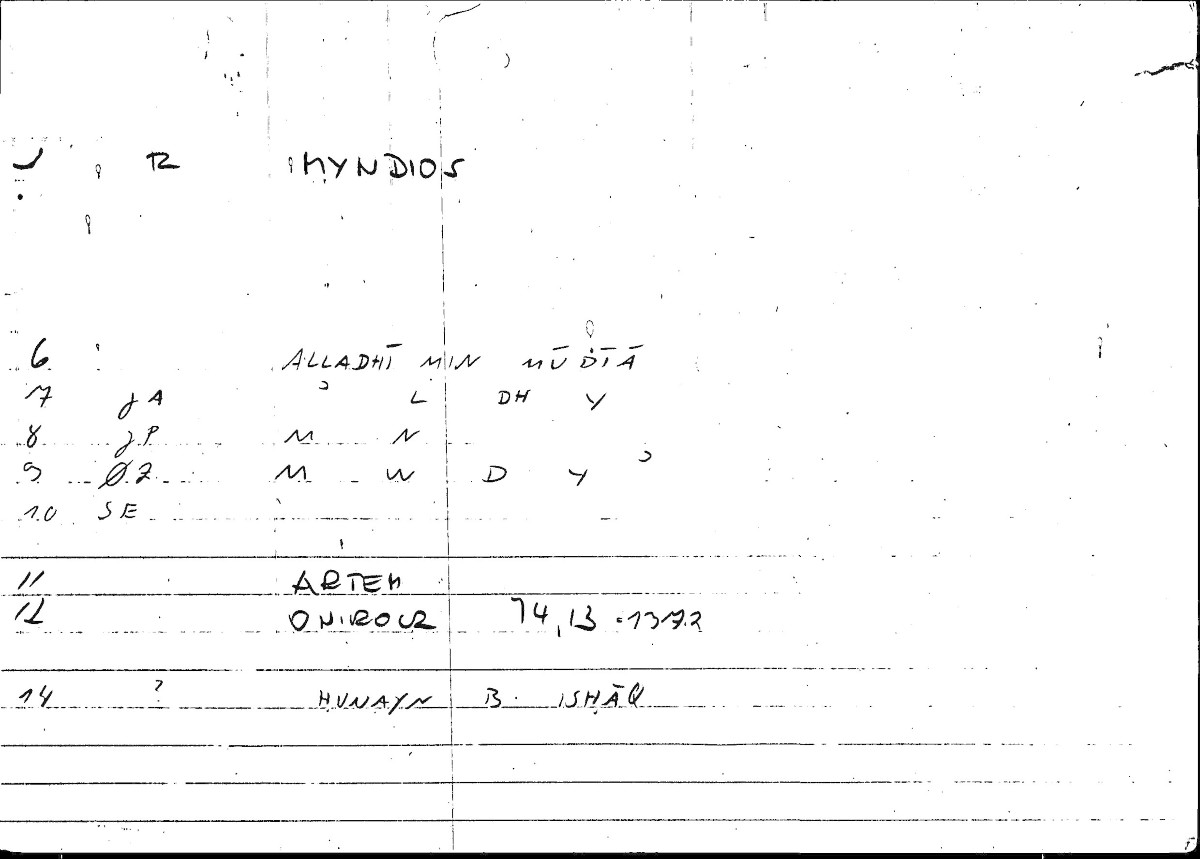 MYNDIOS
6 ALLADHĪ MIN MŪDĪĀ
7 gA ʾ L DH Y
8 gP M N
9 ØZ M W D Y ʾ
10 SE
11 ARTEM
12 ONIROCR 14,13 · 1372
14 ? ḤUNAYN B. ISḤĀQ